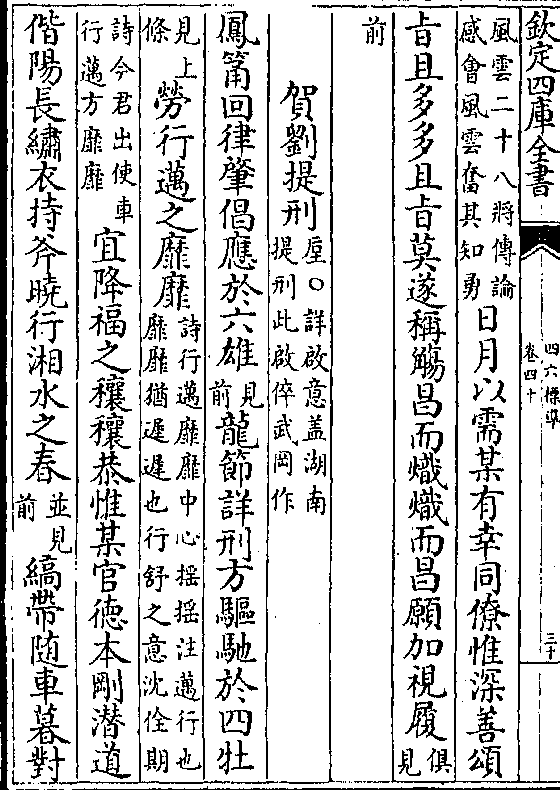 欽定四庫全書
四六標準
卷四十
三十
風雲二十八將傳論
感會風雲奮其知勇
日月以需某有幸同僚惟深善頌
旨且多多且旨莫遂稱觴昌而熾熾而昌願加視履
俱見
前
賀劉提刑
厔〇詳啟意蓋湖南
提刑此啟倅武岡作
鳳筩回律肇倡應於六雄
見前
龍節詳刑方驅馳於四牡
見上
條
勞行邁之靡靡
詩行邁靡靡中心搖搖注邁行也
靡靡猶遲遲也行舒之意沈佺期
詩今君出使車
行邁方靡靡
宜降福之穰穰恭惟某官德本剛潛道
偕陽長繡衣持斧曉行湘水之春
並見
前
縞帶随車暮對